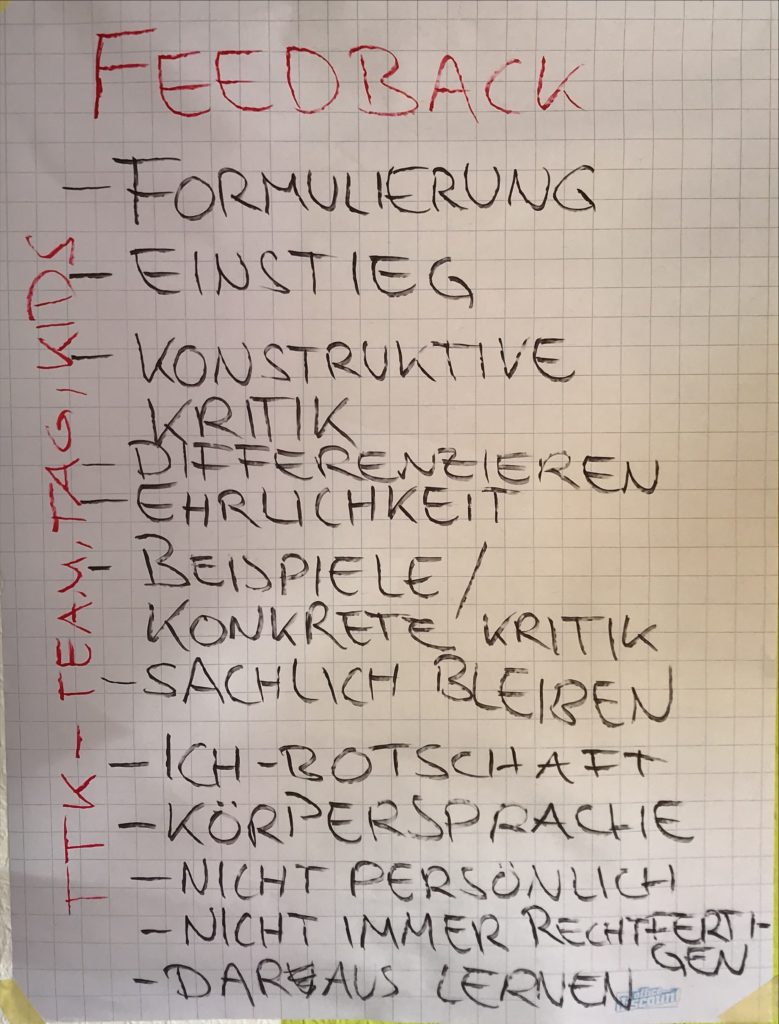 FEEDBACK
- FORMULIERUNG
- EINSTIEG
- KONSTRUKTIVE
KRITIK
- DIFFERENZIEREN
- EHRLICHKEIT
- BEISPIELE/
KONKRETE KRITIK
- SACHLICH BLEIBEN
- ICH-BOTSCHAFT
- KÖRPERSPRACHE
- NICHT PERSÖNLICH
- NICHT IMMER RECHTFERTI-
GEN
- DARAUS LERNEN
office discount
TTK - TEAM, TAG, KIDS